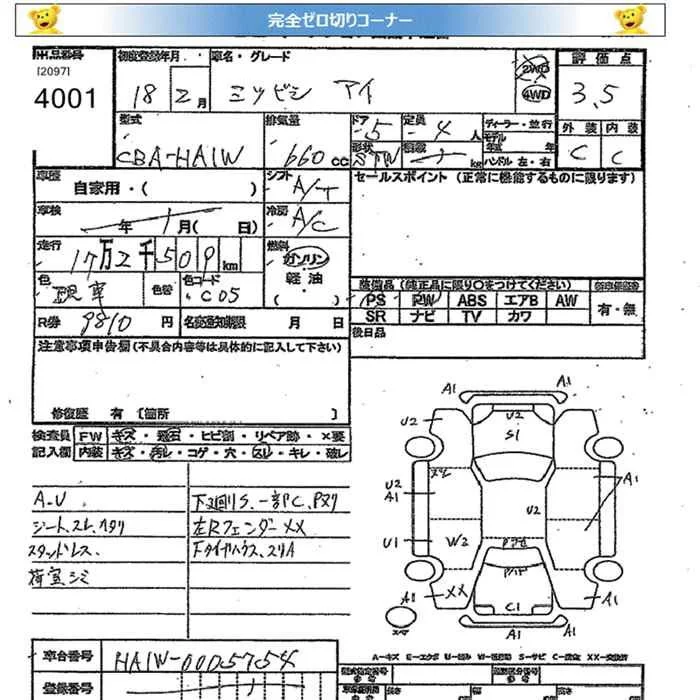 完全ゼロ切りコーナー
出品番号 初度登録年月 車名・グレード 評価点
[2097]
4001 18 2月 ミツビシ アイ 2WD 4WD 3.5
型式 排気量 ドア 定員 ディーラー・並行 外装 内装
CBA-HA1W 660cc 5 4人 モデル 年式 年 C C
形状 STW 積載 KR ハンドル 左・右
車歴 自家用・( ) シフト A/T セールスポイント (正常に機能するものに限ります)
車検 年 月( 日) 冷房 A/C
走行 17万2千509km 燃料 ガソリン 軽油 ( )
色 現車 色替 色コード C05
装備品 (純正品に限り○をつけてください)
PS PW ABS エアB AW 有・無
SR ナビ TV カワ
R券 9810円 名変通知期限 月 日 後日品
注意事項申告欄 (不具合内容等は具体的に記入して下さい)
修復歴 有 [箇所 ]
検査員 FW キズ・飛石・ヒビ割・リペア跡・×要
記入欄 内装 キズ・汚レ・コゲ・穴・スレ・キレ・破レ
A.U 下廻りS.一部C、Pヌリ
シート、スレ、ヘタリ 左Rフェンダー××
スタッドレス. 下タイヤハウス、スリA
荷室シミ
A1 A1
U2 U2
S1
スレ
U2 A1 A1
U2
U1 W2
××
A1 C1 A1
スペア
A1 A1
A-キズ E-エクボ U-凹み W-波凹跡 S-サビ C-腐食 XX-交換済
車台番号 HA1W-0005754
登録番号